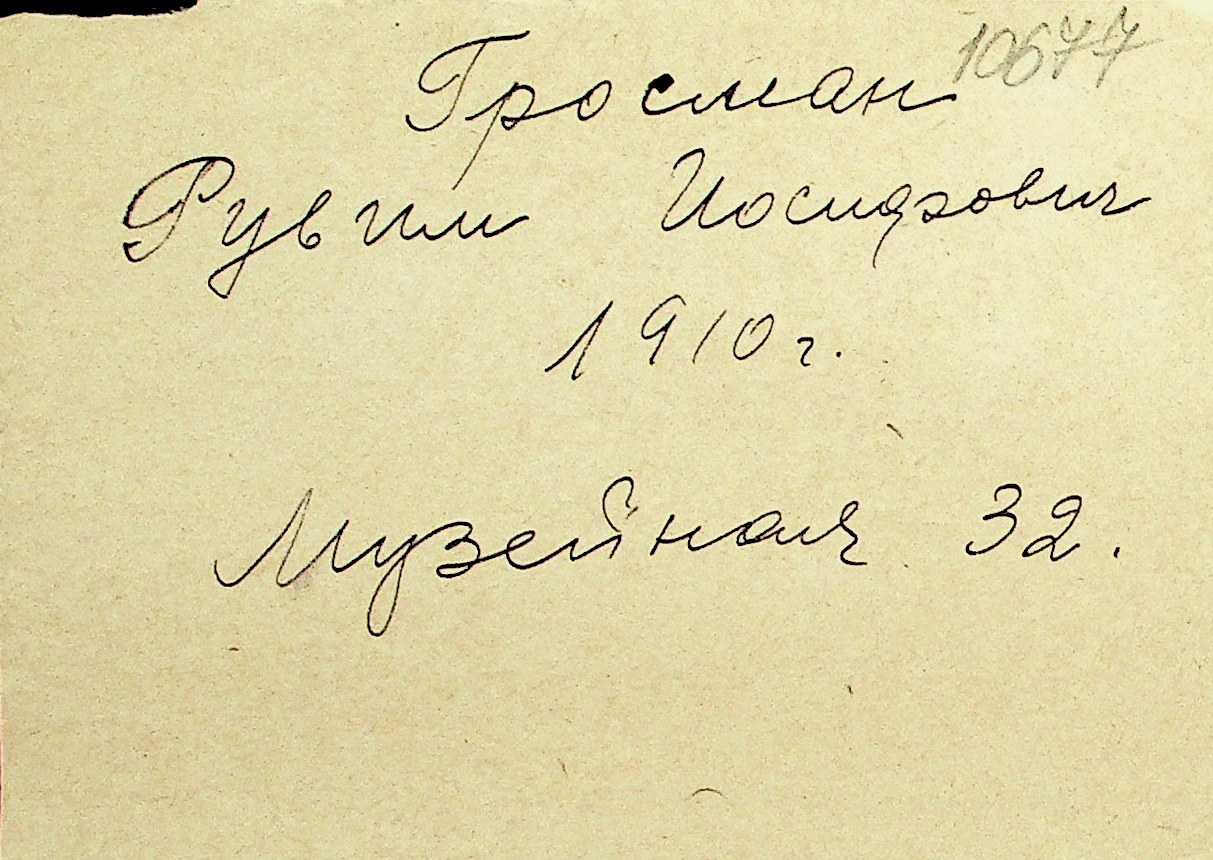 10677
Гросман
Рувим Иосифович
1910 г.
Музейная 32.